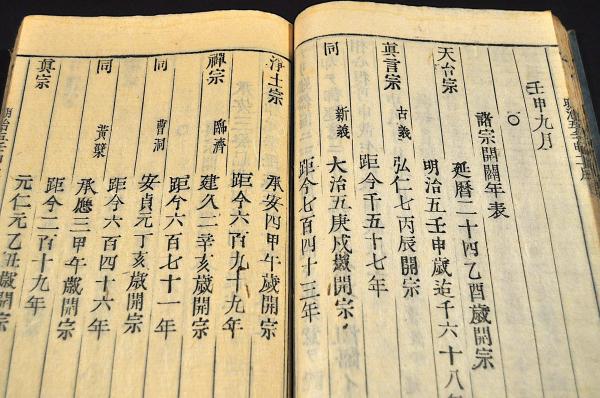 壬申九月
〇諸宗開闢年表
天台宗 延暦二十四乙酉歳開宗
明治五壬申歳迄千六十八年
眞言宗 古義 弘仁七丙辰開宗
距今千五十七年
同 新義 大治五庚戌歳開宗
距今七百四十三年
淨土宗 承安四甲午歳開宗
距今六百九十九年
禪宗 臨濟 建久二辛亥歳開宗
距今六百七十一年
同 曹洞 安貞元丁亥歳開宗
距今六百四十六年
同 黃檗 承應三甲午歳開宗
距今二百十九年
眞宗 元仁元 歳開宗